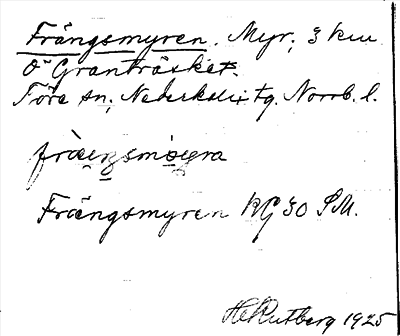 Frängsmyren. Myr; 3 km
Ö Granträsket.
Töre sn, Nederkalix tg. Norrb. l.
fràeŋsmøyra
Frängsmyren RG 30 SM.
H Rutberg 1925